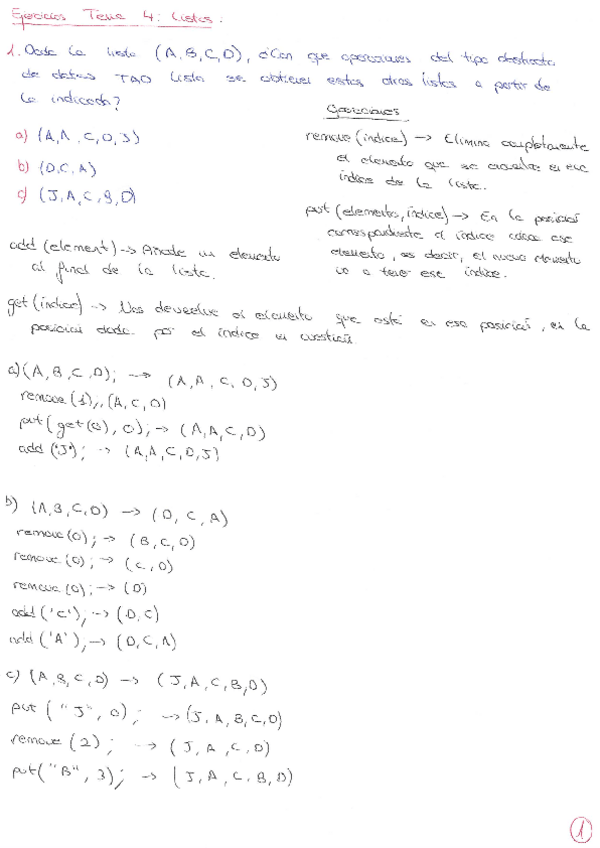 Ejercicios Tema 4: Listas.
1. Dada la lista (A,B,C,D), ¿Con que operaciones del tipo abstracto
de datos TAD Lista se obtienen estas otras listas a partir de
la indicada?
a) (A,A,C,D,J)
b) (D,C,A)
c) (J,A,C,B,D)
Operaciones
remove(índice) → Elimina completamente
el elemento que se encuentra en ese
índice de la lista.
put(elemento,índice) → En la posición
correspondiente al índice coloca ese
elemento, es decir, el nuevo elemento
va a tener ese índice.
add(element) → Añade un elemento
al final de la lista.
get(índice) → Nos devuelve el elemento que está en esa posición, en la
posición dada por el índice en cuestión.
a)(A,B,C,D); → (A,A,C,D,J)
remove(1);,(A,C,D)
put(get(0),0); → (A,A,C,D)
add('J'); → (A,A,C,D,J)
b) (A,B,C,D) → (D,C,A)
remove(0); → (B,C,D)
remove(0); → (C,D)
remove(0); → (D)
add('C'); → (D,C)
add('A'), → (D,C,A)
c) (A,B,C,D) → (J,A,C,B,D)
put("J",0); → (J,A,B,C,D)
remove(2); → (J,A,C,D)
put("B",3); → (J,A,C,B,D)
1